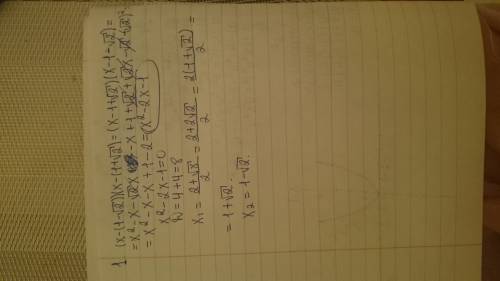 1. (x-(1-√2))(x-(1+√2))=(x-1+√2)(x-1-√2)=
=x²-x-√2x-x+1+√2+√2x-√2-(√2)²
=x²-x-x+1-2=x²-2x-1
x²-2x-1=0
D=4+4=8
x₁=2+√8/2=2+2√2/2=2(1+√2)/2=
=1+√2.
x₂=1-√2.